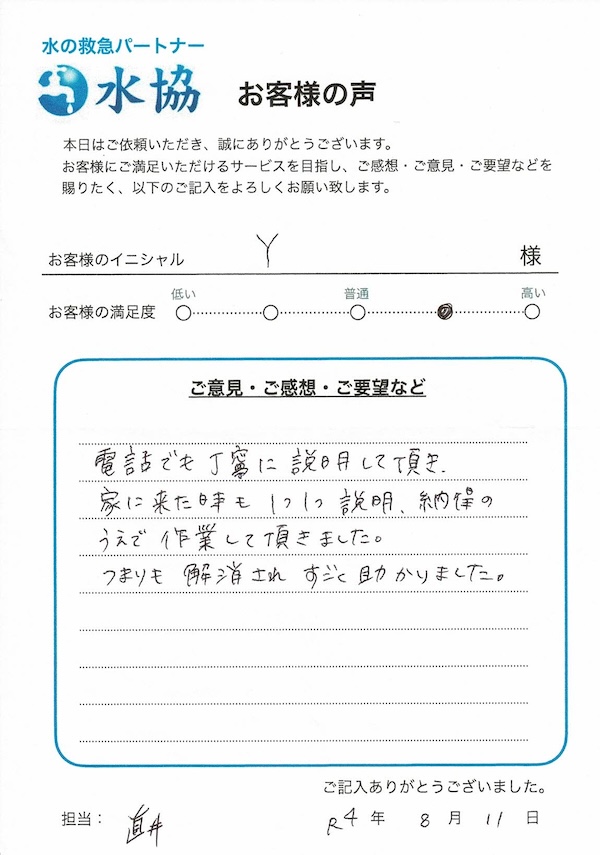 水の救急パートナー
水協
お客様の声
本日はご依頼いただき、誠にありがとうございます。
お客様にご満足いただけるサービスを目指し、ご感想・ご意見・ご要望などを
賜りたく、以下のご記入をよろしくお願い致します。
お客様のイニシャル Y 様
低い 普通 高い
お客様の満足度
ご意見・ご感想・ご要望など
電話でも丁寧に説明して頂き、
家に来た時も1つ1つ説明、納得の
うえで作業して頂きました。
つまりも解消されすごく助かりました。
ご記入ありがとうございました。
担当： 直井 R4年 8月 11日